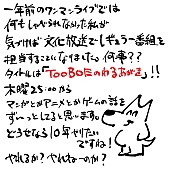 一年前のワンマンライブでは
何もしゃべらなかった私が
気づけば文化放送でレギュラー番組を
担当することになりました。何事??
タイトルは「TooBOEのわるあがき」!!
木曜25:00から
マンガとかアニメとかゲームの話を
ずぃーっとしてると思います。
どうせなら10年やりたい
ですね!
やれるか?やれんのーのか?